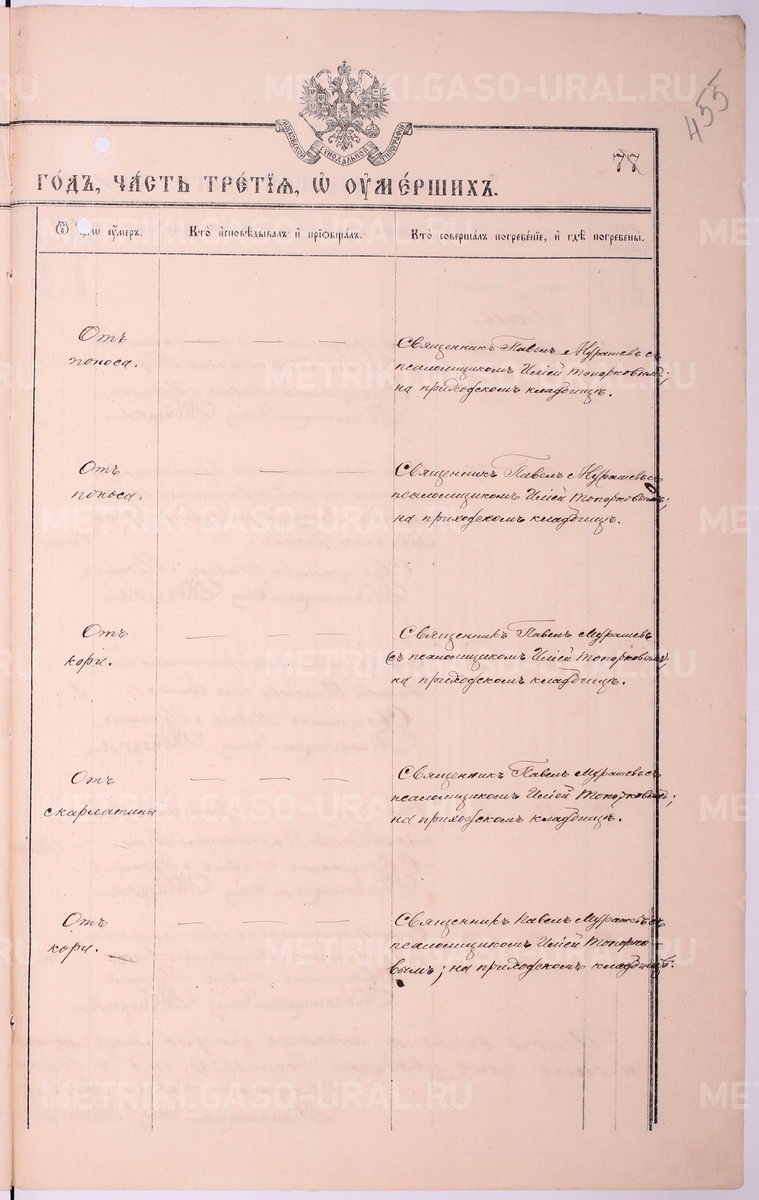 METRIKI.GASO-URAL.RU
455
МОСКОВСКОЙ СѴНОДАЛЬНОЙ ТИПОГРАФІИ
77
ГО́ДЪ, ЧА́СТЬ ТРЕ́ТІЯ, Ѡ҆ ОУ҆МЕ́РШИХЪ.
Ѿ оу҆меръ.
Кто̀ и҆сповѣ́дывалъ и҆ прїѡбща́лъ.
Кто̀ соверша́лъ погребе́нїе, и҆ гдѣ̀ погребены̀.
Отъ
поноса.
— — —
Священникъ Павелъ Мурашевъ съ
псаломщикомъ Топорковымъ;
на приходскомъ кладбищѣ.
Отъ
поноса.
— — —
Священникъ Павелъ Мурашевъ съ
псаломщикомъ Топорковымъ;
на приходскомъ кладбищѣ.
Отъ
кори.
— — —
Священникъ Павелъ Мурашевъ
съ псаломщикомъ Топорковымъ;
на приходскомъ кладбищѣ.
Отъ
скарлатины
— — —
Священникъ Павелъ Мурашевъ съ
псаломщикомъ Топорковымъ;
на приходскомъ кладбищѣ.
Отъ
кори.
— — —
Священникъ Павелъ Мурашевъ съ
псаломщикомъ Топорко
вымъ; на приходскомъ кладбищѣ.